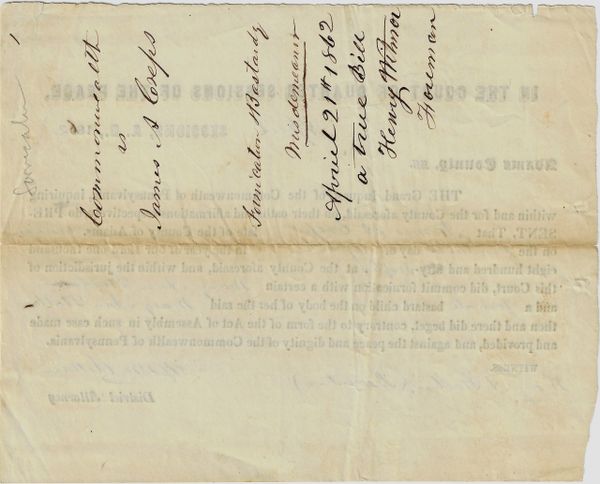 1
Commonwealth
vs
James A Creps
Fornication & Bastardy
Misdemeanor
April 21st 1862
a true Bill
Henry Wilmor
Foreman
Fornication
IN THE COURT OF QUARTER SESSIONS OF THE PEACE,
SESSIONS, A. D. 186
Adams County, ss.
THE Grand Inquest of the Commonwealth of Pennsylvania, inquiring
within and for the County aforesaid, on their oaths and affirmations respectively, do PRE-
SENT, That
late of the County of Adams,
on the day of in the year of our Lord one thousand
eight hundred and at the County aforesaid, and within the jurisdiction of
this Court, did commit fornication with a certain
and a bastard child on the body of her the said
then and there did beget, contrary to the form of the Act of Assembly in such case made
and provided, and against the peace and dignity of the Commonwealth of Pennsylvania.
WITNESS,
District Attorney